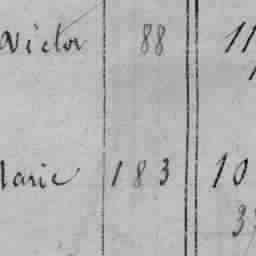 Victor 88 11
Marie 183 10
33